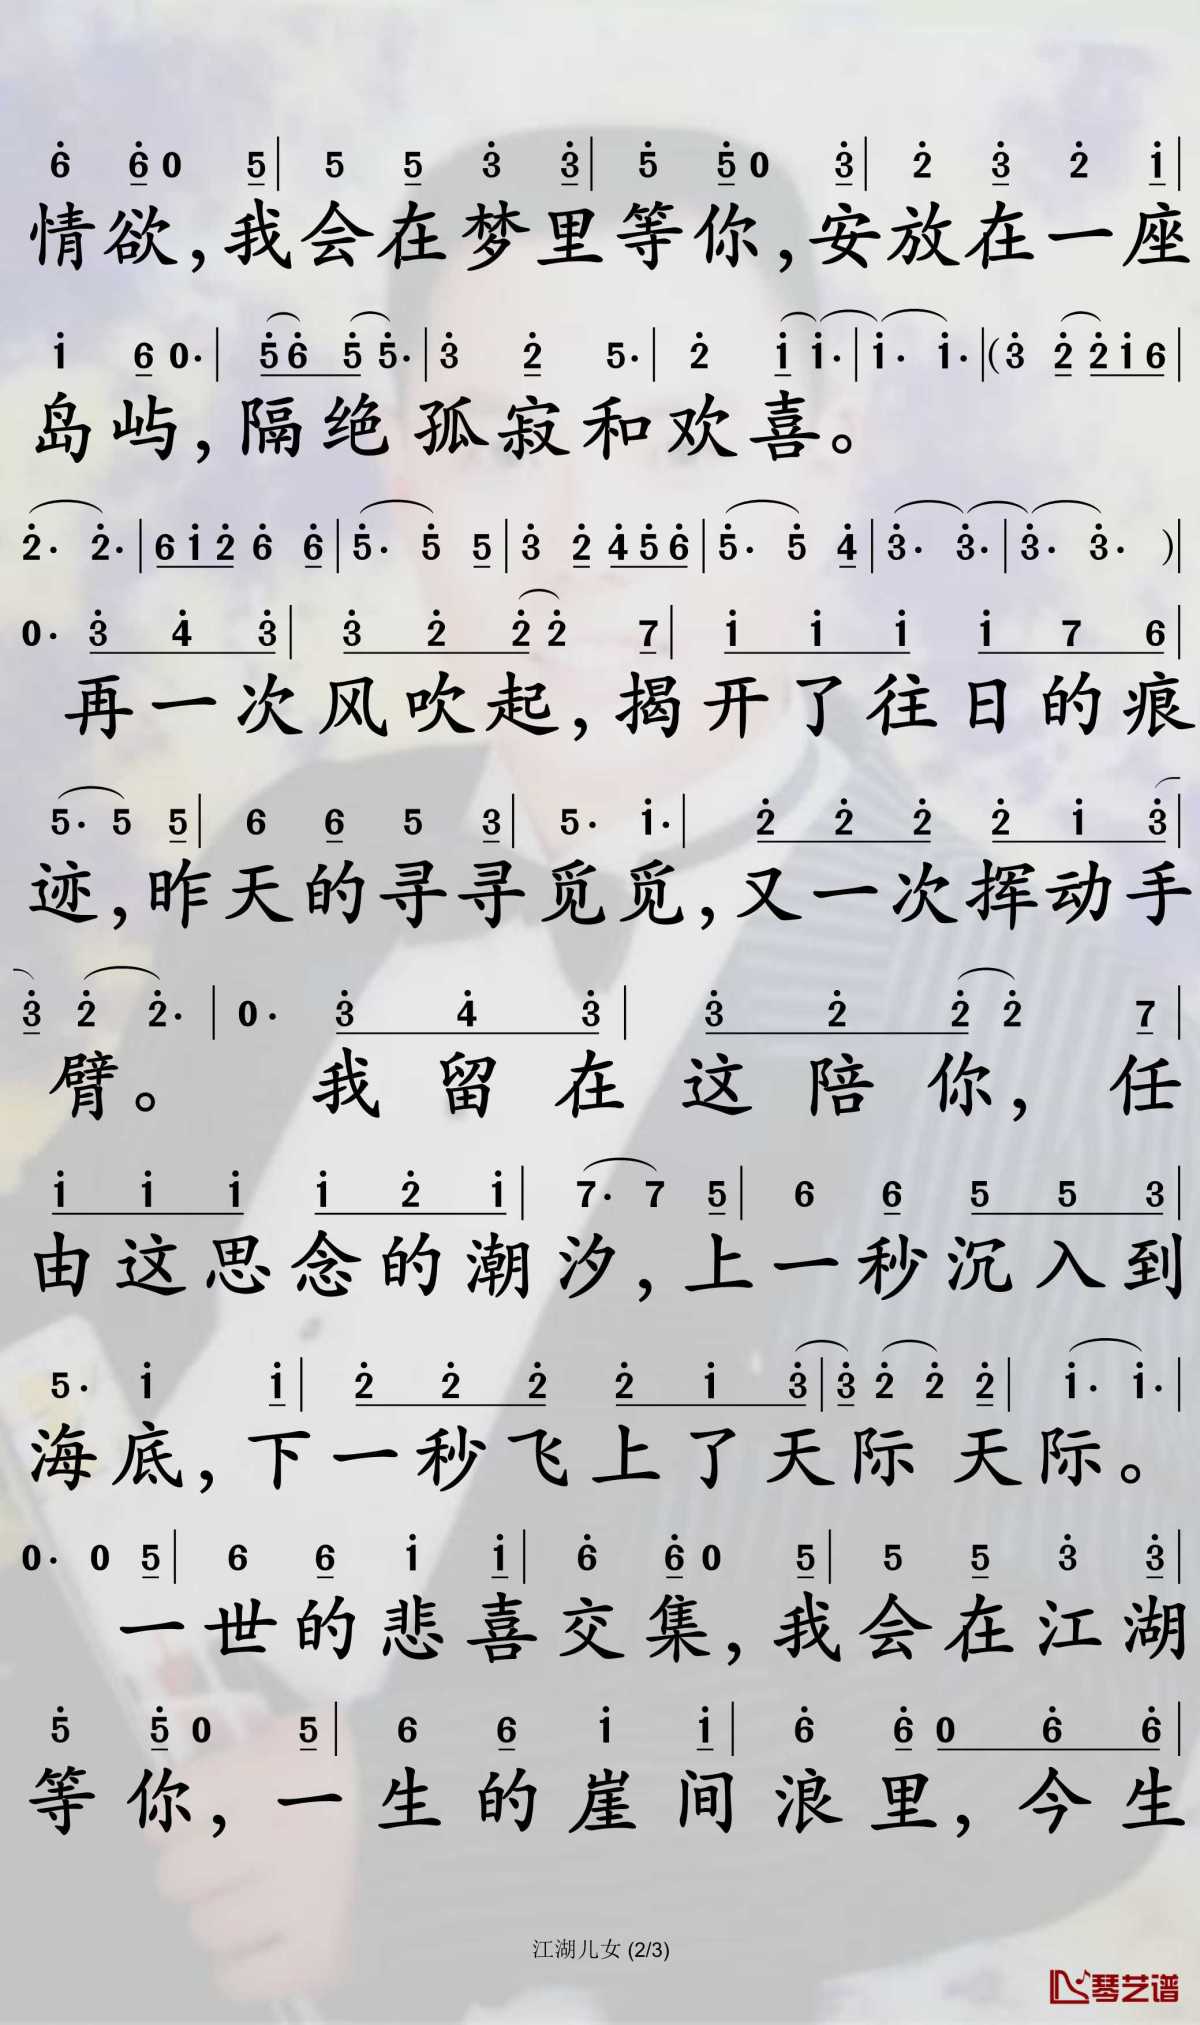 6 6 0 5 | 5 5 3 3 | 5 5 0 3 | 2 3 2 1 |
情欲,我会在梦里等你,安放在一座
1 6 0· | 5 6 5 5· | 3 2 5· | 2 1 1· | 1· 1· | (3 2 2 1 6 |
岛屿,隔绝孤寂和欢喜。
2· 2· | 6 1 2 6 6 | 5· 5 5 | 3 2 4 5 6 | 5· 5 4 | 3· 3· | 3· 3· ) |
0· 3 4 3 | 3 2 2 2 7 | 1 1 1 1 7 6
再一次风吹起,揭开了往日的痕
5· 5 5 | 6 6 5 3 | 5· 1· | 2 2 2 2 1 3 |
迹,昨天的寻寻觅觅,又一次挥动手
3 2 2· | 0· 3 4 3 | 3 2 2 2 7 |
臂。 我留在这陪你,任
1 1 1 1 2 1 | 7· 7 5 | 6 6 5 5 3 |
由这思念的潮汐,上一秒沉入到
5· 1 1 | 2 2 2 2 1 3 | 3 2 2 2 | 1· 1· |
海底,下一秒飞上了天际 天际。
0· 0 5 | 6 6 1 1 | 6 6 0 5 | 5 5 3 3 |
一世的悲喜交集,我会在江湖
5 5 0 5 | 6 6 1 1 | 6 6 0 6 6 |
等你,一生的崖间浪里,今生
江湖儿女 (2/3)
琴艺谱